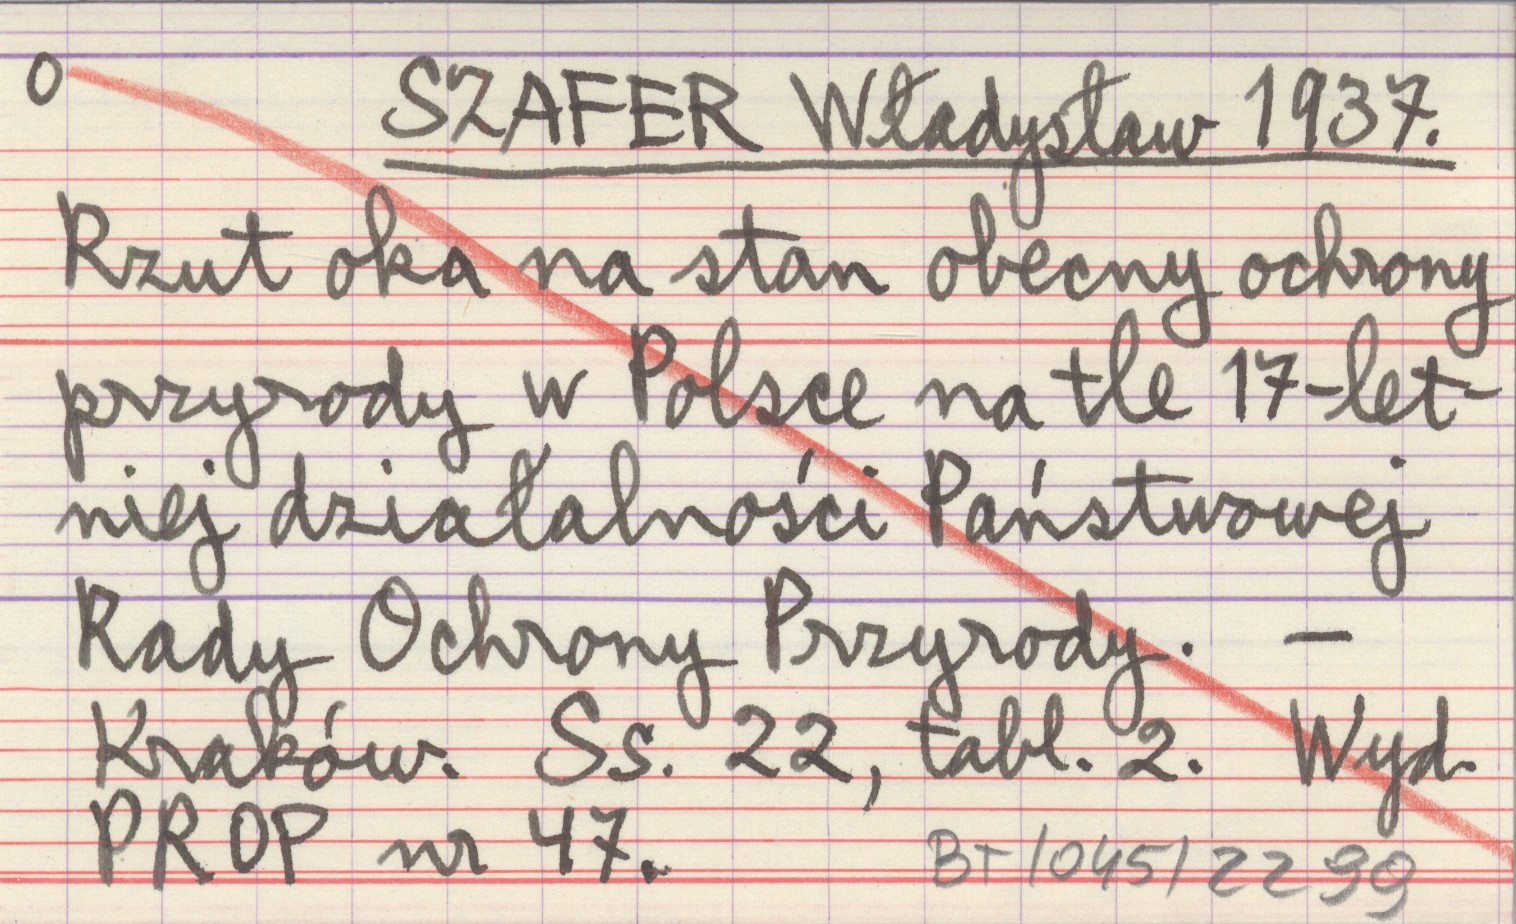 O SZAFER Władysław 1937.
Rzut oka na stan obecny ochrony
przyrody w Polsce na tle 17-let-
niej działalności Państwowej
Rady Ochrony Przyrody. —
Kraków. Ss. 22, tabl. 2. Wyd.
PROP nr 47.
BT/045/2299